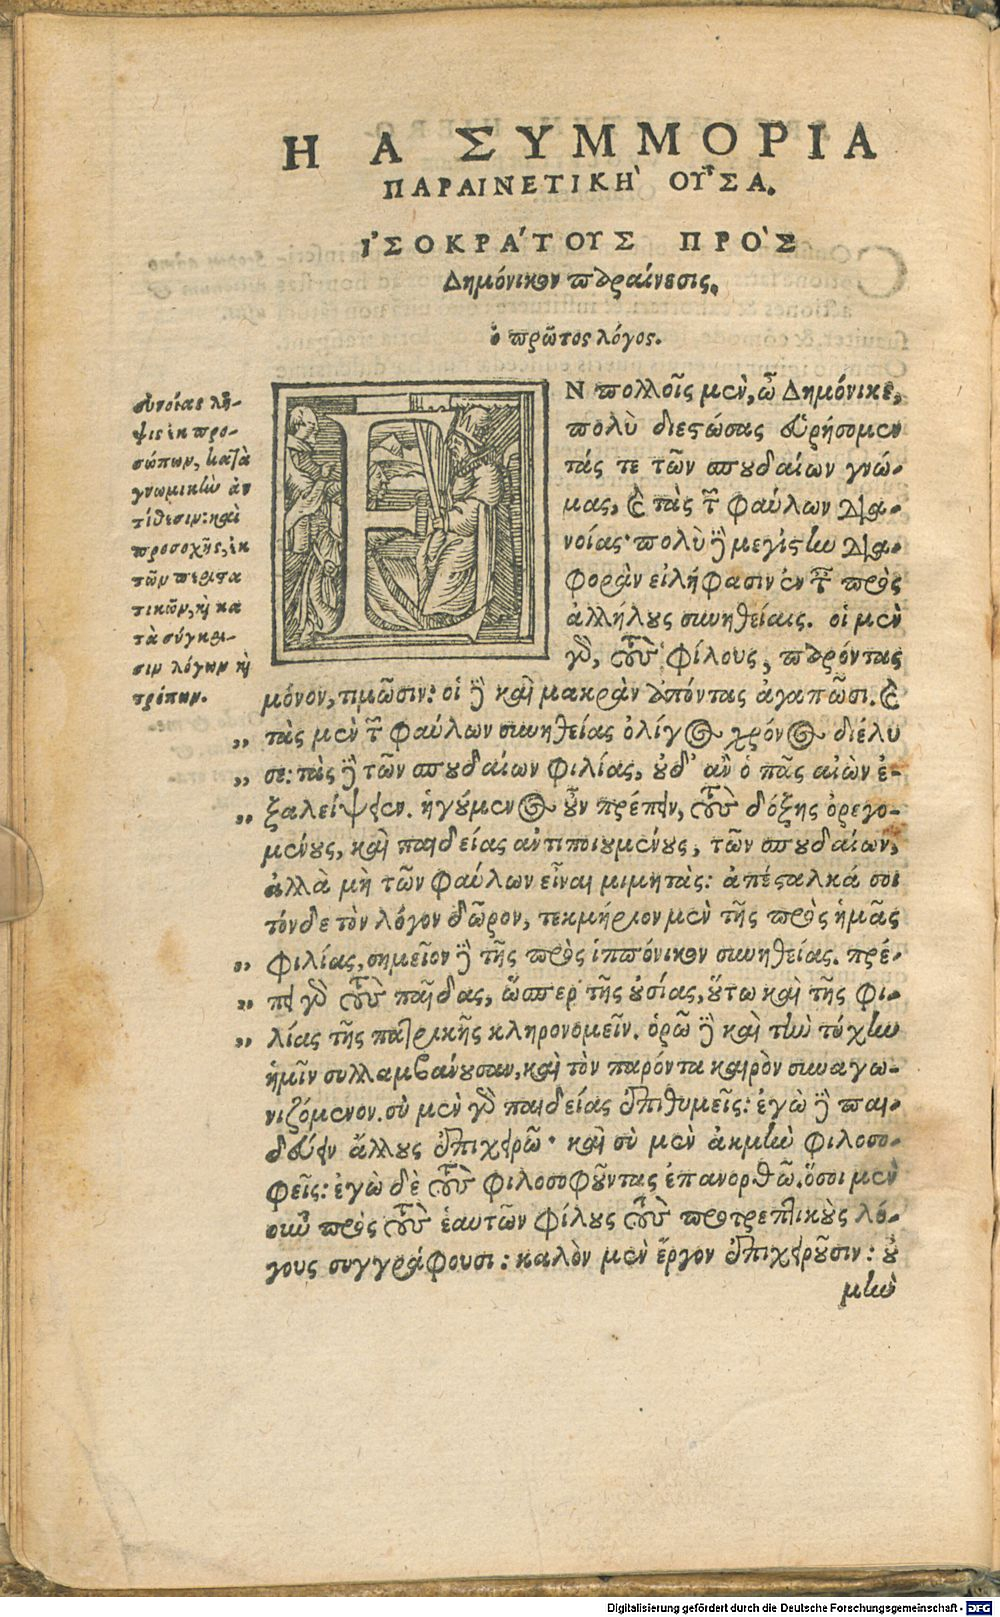 Η Α ΣΥΜΜΟΡΙΑ
ΠΑΡΑΙΝΕΤΙΚῊ ΟΥ͂ΣΑ.
ἸΣΟΚΡΆΤΟΥΣ ΠΡῸΣ
Δημόνικον παραίνεσις.
ὁ πρῶτος λόγος.
συνοίας λῆ-
ψις ἐκ προ-
σώπων, κατὰ
γνωμικὴν ἀν
τίθεσιν: καὶ
προσοχῆς, ἐκ
τῶν περιστα
τικῶν, κὶ κα
τὰ σύγκρι-
σιν λόγων κὶ
τρόπων.
ΕΝ πολλοῖς μὲν, ὦ Δημόνικε,
πολὺ διεστώσας εὑρήσομεν
τάς τε τῶν σπουδαίων γνώ-
μας, καὶ τὰς τῶν φαύλων δια-
νοίας· πολὺ δὲ μεγίστην δια-
φορὰν εἰλήφασιν ἐν ταῖς πρὸς
ἀλλήλους συνηθείαις. οἱ μὲν
γὰρ, τοὺς φίλους, παρόντας
μόνον, τιμῶσιν: οἱ δὲ καὶ μακρὰν ἀπόντας ἀγαπῶσι. καὶ
„ τὰς μὲν τῶν φαύλων συνηθείας ὀλίγος χρόνος διέλυ
„ σε: τὰς δὲ τῶν σπουδαίων φιλίας, οὐδ' ἂν ὁ πᾶς αἰὼν ἐ-
„ ξαλείψειεν. ἡγούμενος οὖν πρέπειν, τοὺς δόξης ὀρεγο-
μένους, καὶ παιδείας ἀντιποιουμένους, τῶν σπουδαίων,
ἀλλὰ μὴ τῶν φαύλων εἶναι μιμητὰς: ἀπέσταλκά σοι
τόνδε τὸν λόγον δῶρον, τεκμήριον μὲν τῆς πρὸς ἡμᾶς
„ φιλίας, σημεῖον δὲ τῆς πρὸς ἱππόνικον συνηθείας. πρέ-
„ πει γὰρ τοὺς παῖδας, ὥσπερ τῆς οὐσίας, οὕτω καὶ τῆς φι-
„ λίας τῆς πατρικῆς κληρονομεῖν. ὁρῶ δὲ καὶ τὴν τύχην
ἡμῖν συλλαμβάνουσαν, καὶ τὸν παρόντα καιρὸν συναγω-
νιζόμενον. σὺ μὲν γὰρ παιδείας ἐπιθυμεῖς: ἐγὼ δὲ παι-
δεύειν ἄλλους ἐπιχειρῶ· καὶ σὺ μὲν ἀκμὴν φιλοσο-
φεῖς: ἐγὼ δὲ τοὺς φιλοσοφοῦντας ἐπανορθῶ. ὅσοι μὲν
οὖν πρὸς τοὺς ἑαυτῶν φίλους τοὺς προτρεπτικοὺς λό-
γους συγγράφουσι: καλὸν μὲν ἔργον ἐπιχειροῦσιν: οὐ
μὴν
Digitalisierung gefördert durch die Deutsche Forschungsgemeinschaft - DFG